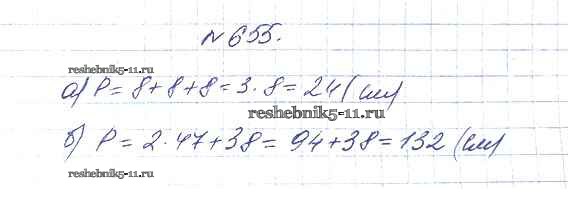 №655.
reshebnik5-11.ru
а) P = 8+8+8 = 3·8 = 24 (см)
reshebnik5-11.ru
б) P = 2·47+38 = 94+38 = 132 (см)
reshebnik5-11.ru